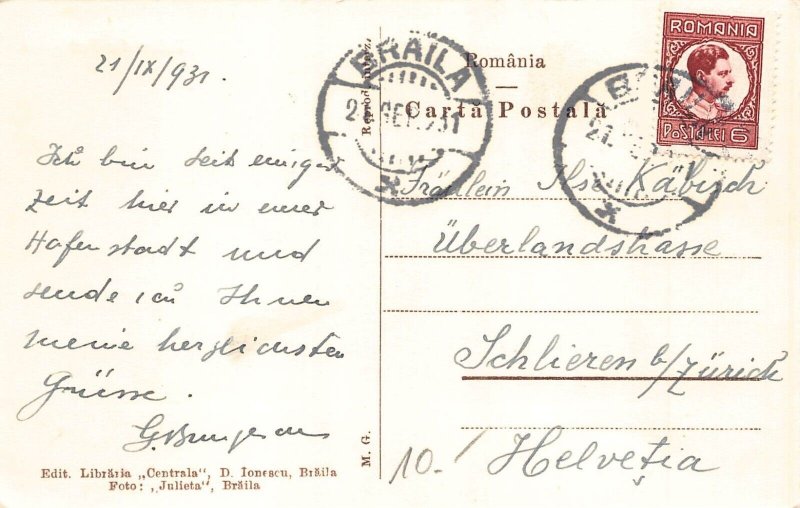 21/IX/931.
Ich bin seit einiger
Zeit hier in einer
Hafenstadt und
sende ich Ihnen
meine herzlichsten
Grüsse.
Edit. Librăria „Centrala“, D. Ionescu, Brăila
Foto: „Julieta“, Brăila
M. G.
BRĂILA
SEP. 931
România
Carta Postală
ROMANIA
POSTA LEI 6
BRĂILA
Fräulein Ilse Käbisch
Überlandstrasse
Schlieren b/Zürich
Helveția
10.-